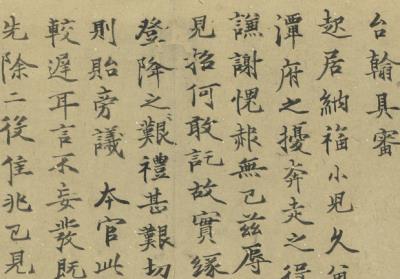 台翰具審
起居納福小兒久留
潭府之擾奔走之役
謙謝愧赧無已茲辱
見招何敢託故實緣
登降之艱禮甚艱切
則貽旁議 本官此
較遲耳言不妄發既
先除二後佳兆已見